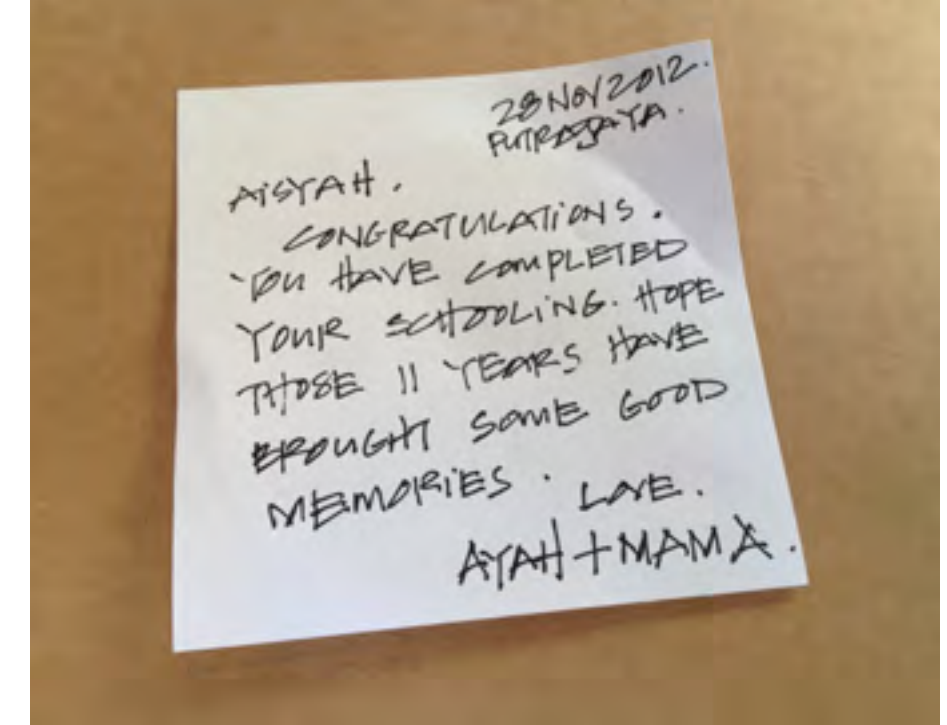 28 NOV 2012.
PUTRAJAYA.
AISYAH.
CONGRATULATIONS.
YOU HAVE COMPLETED
YOUR SCHOOLING. HOPE
THOSE 11 YEARS HAVE
BROUGHT SOME GOOD
MEMORIES. LOVE.
AYAH + MAMA.